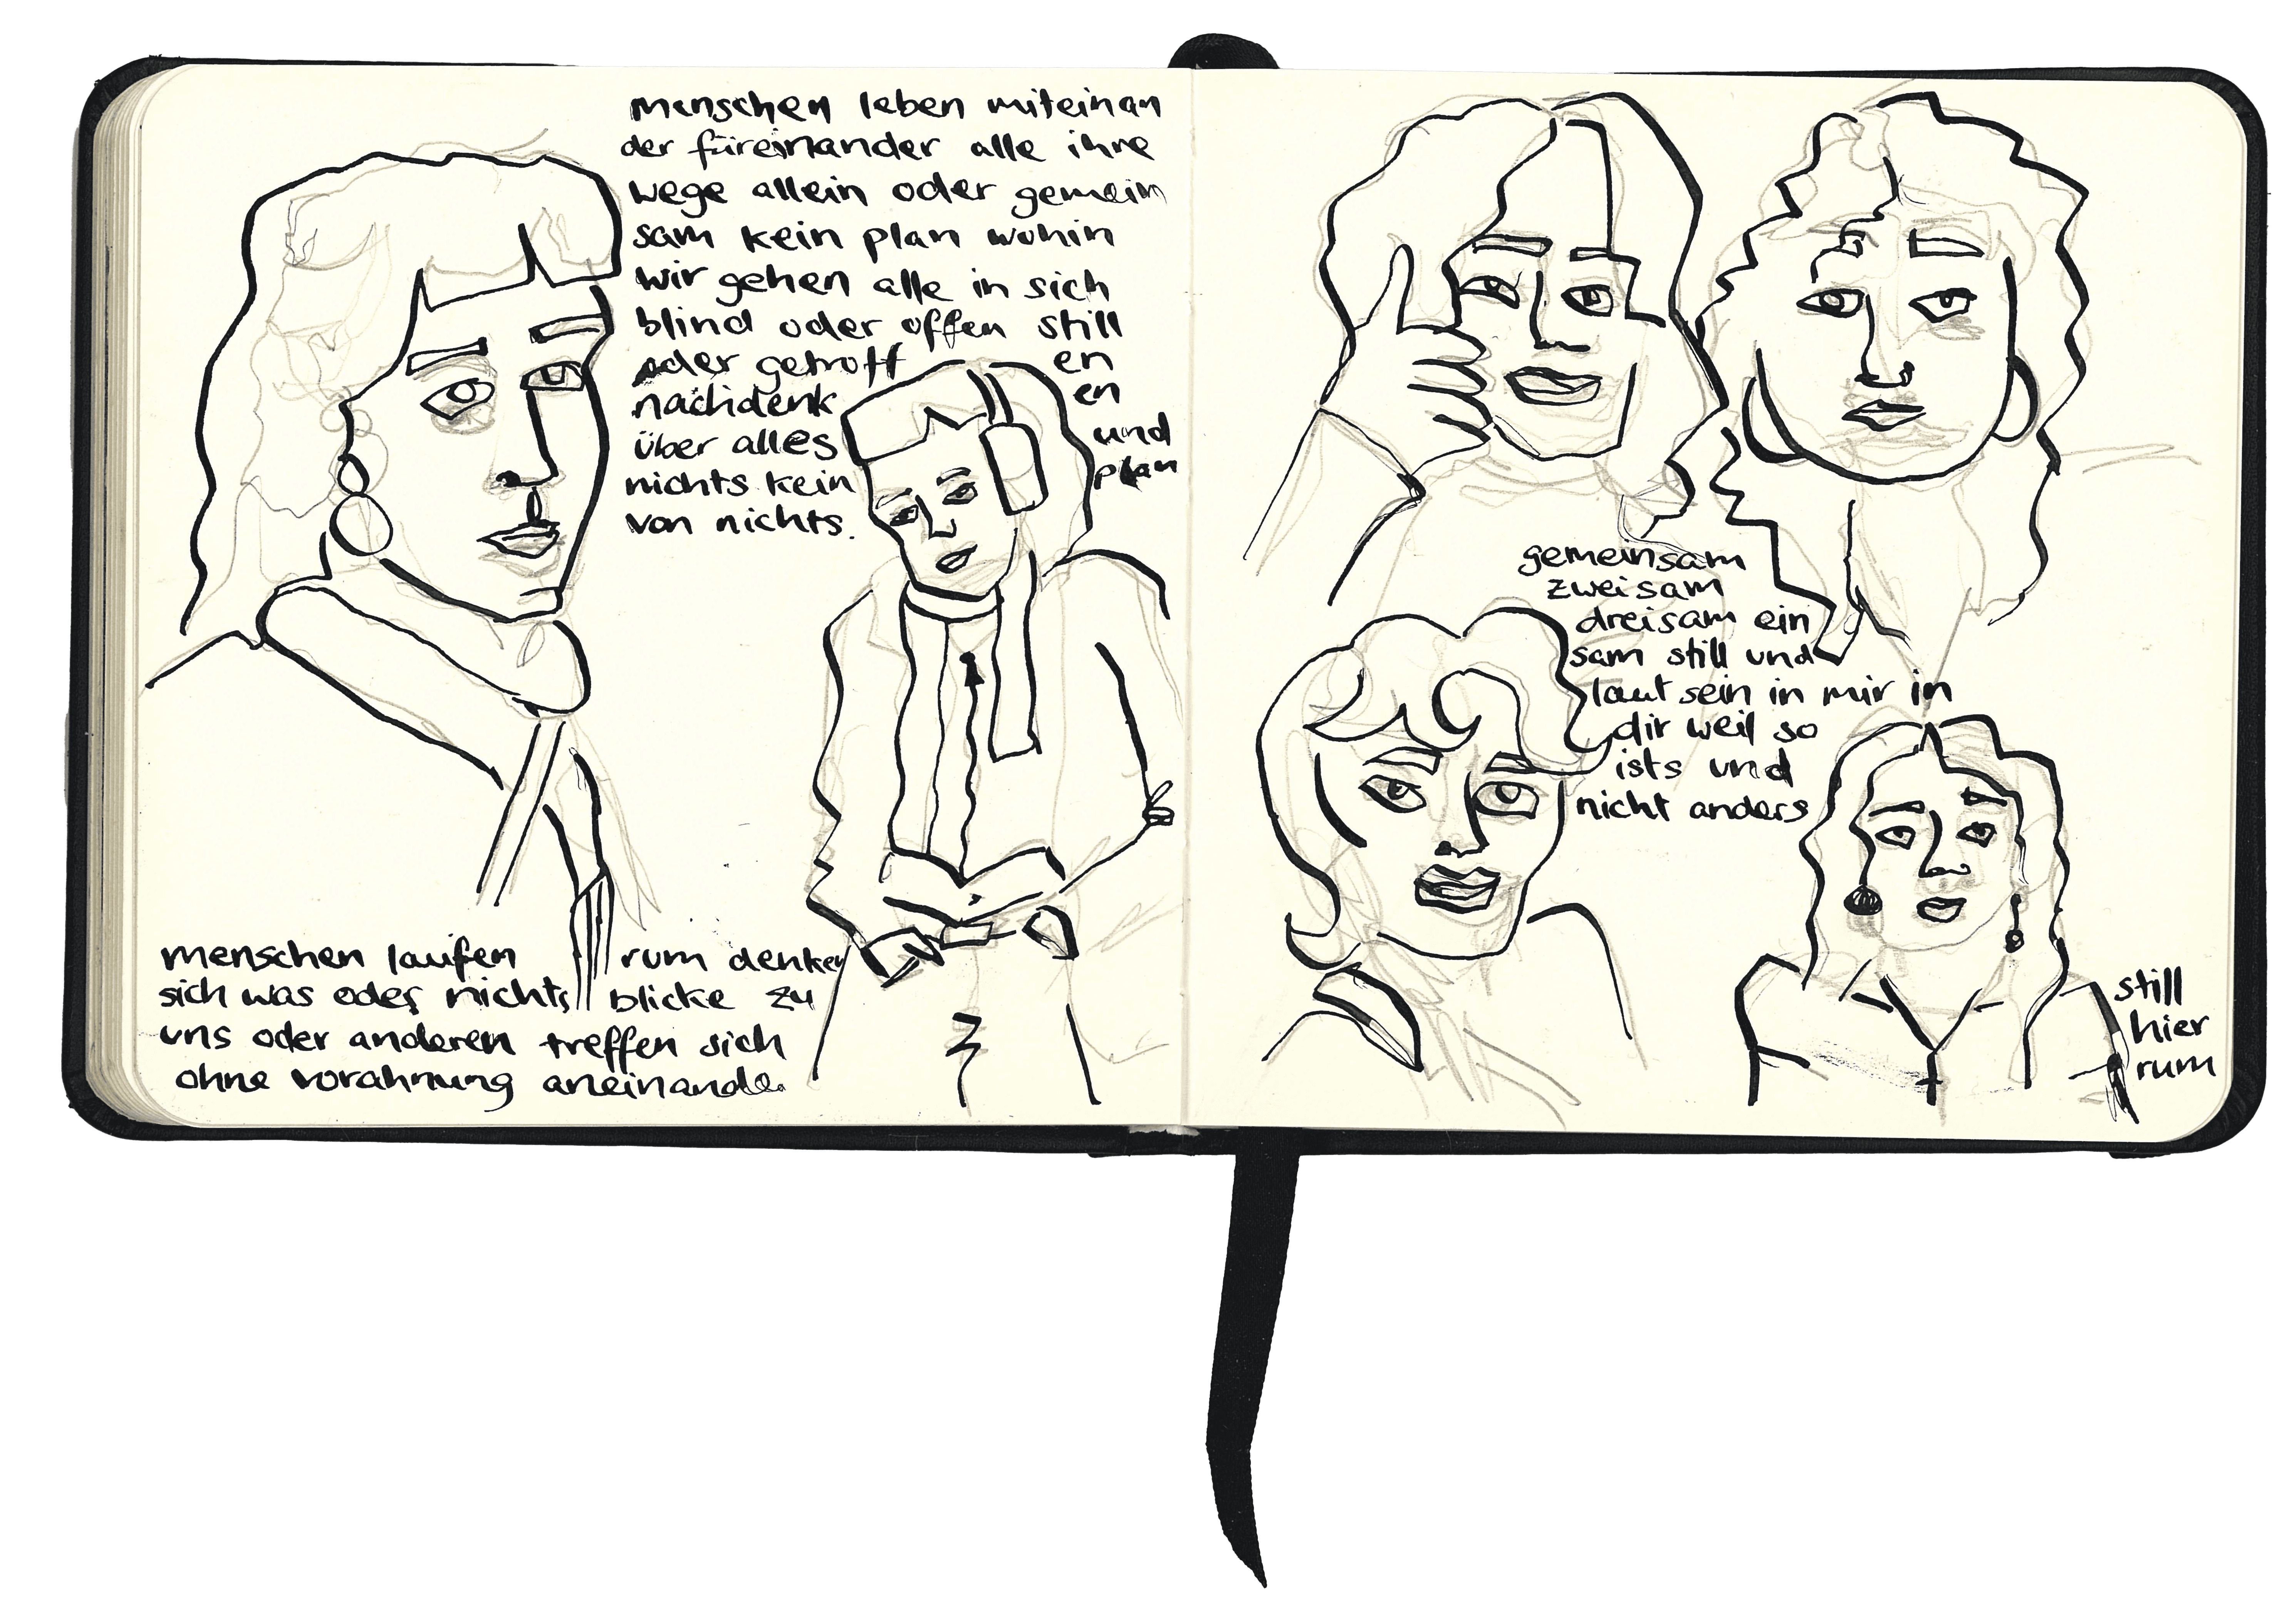 menschen leben miteinan
der füreinander alle ihre
wege allein oder gemein
sam kein plan wohin
wir gehen alle in sich
blind oder offen still
oder getroff en
nachdenk en
über alles und
nichts kein plan
von nichts.
menschen laufen rum denken
sich was oder nichts blicke zu
uns oder anderen treffen sich
ohne vorahnung aneinander
gemeinsam
zweisam
dreisam ein
sam still und
laut sein in mir in
dir weil so
ists und
nicht anders
still
hier
rum